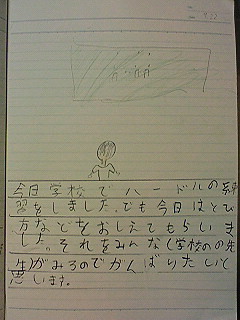 今日学校でハードルの練
習をしました。でも今日はとび
方などをおしえてもらいま
した。それをみんな(学校のの先
生)がみるのでがんばりたいと
思います。